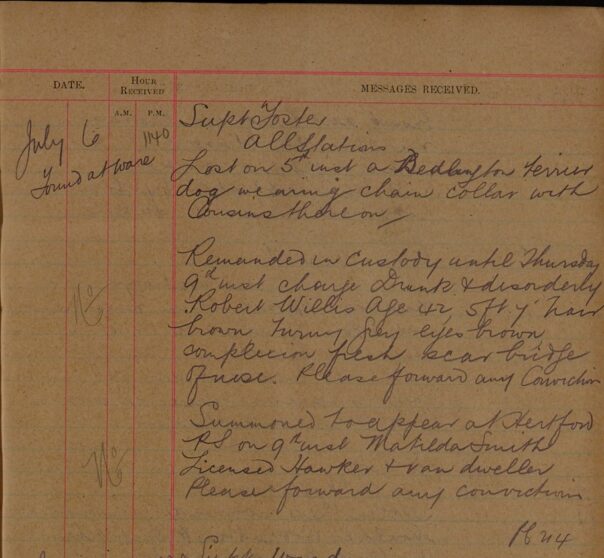 DATE.
HOUR RECEIVED
A.M.
P.M.
MESSAGES RECEIVED.
July 6
1140
Found at Ware
Supt Foster
All Stations
Lost on 5th inst a Bedlington Terrier
dog wearing chain collar with
Cousins thereon
Remanded in custody until Thursday
9th inst charge Drunk & disorderly
Robert Willis Age 42, 5ft 7 hair
brown turning grey eyes brown
complexion fresh scar bridge
of nose. Please forward any Conviction
No
Summoned to appear at Hertford
PS on 9th inst Matilda Smith
Licensed Hawker & van dweller
Please forward any convictions
No
Supt Wood